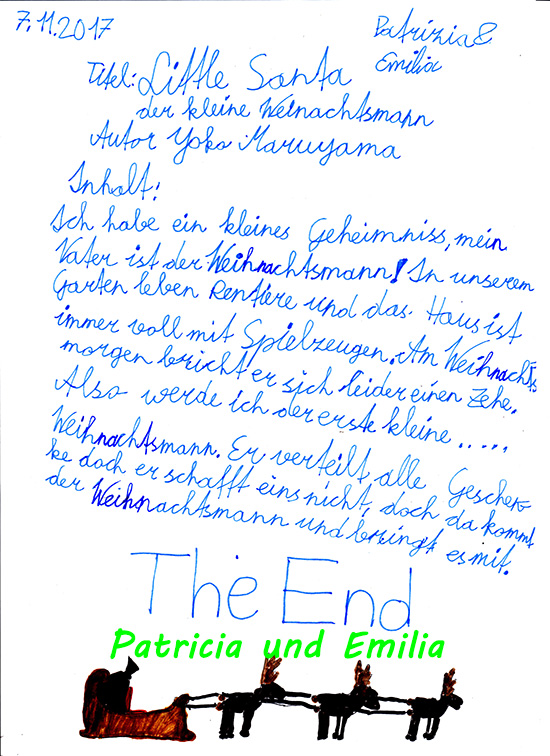 7.11.2017
Patrizia &
Emilia
Titel: Little Santa
der kleine Weinachtsmann
Autor Yoko Maruyama
Inhalt:
Ich habe ein kleines Geheimniss, mein
Vater ist der Weihnachtsmann! In unserem
Garten leben Rentiere und das Haus ist
immer voll mit Spielzeugen. Am Weihnachts
morgen bricht er sich leider einen Zehe.
Also werde ich der erste kleine .....
Weihnachtsmann. Er verteilt alle Geschen
ke doch er schafft eins nicht, doch da kommt
der Weihnachtsmann und bringt es mit.
The End
Patricia und Emilia